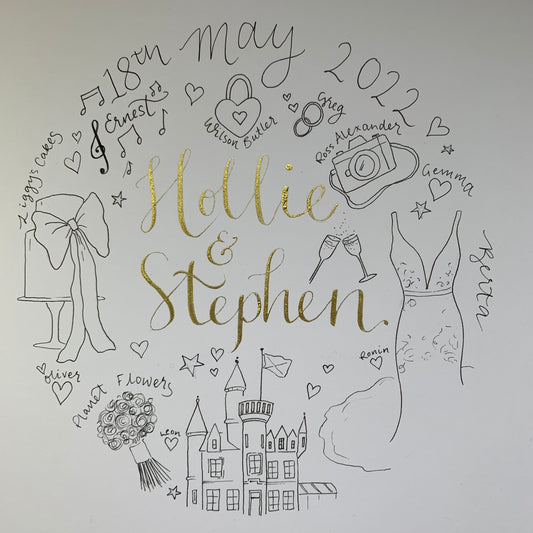 18th may 2022
Ernest
Wilson Butler
Greg
Ross Alexander
Ziggys Cakes
Gemma
Hollie
&
Stephen.
Berta
Ronin
Oliver
Planet Flowers
Leon